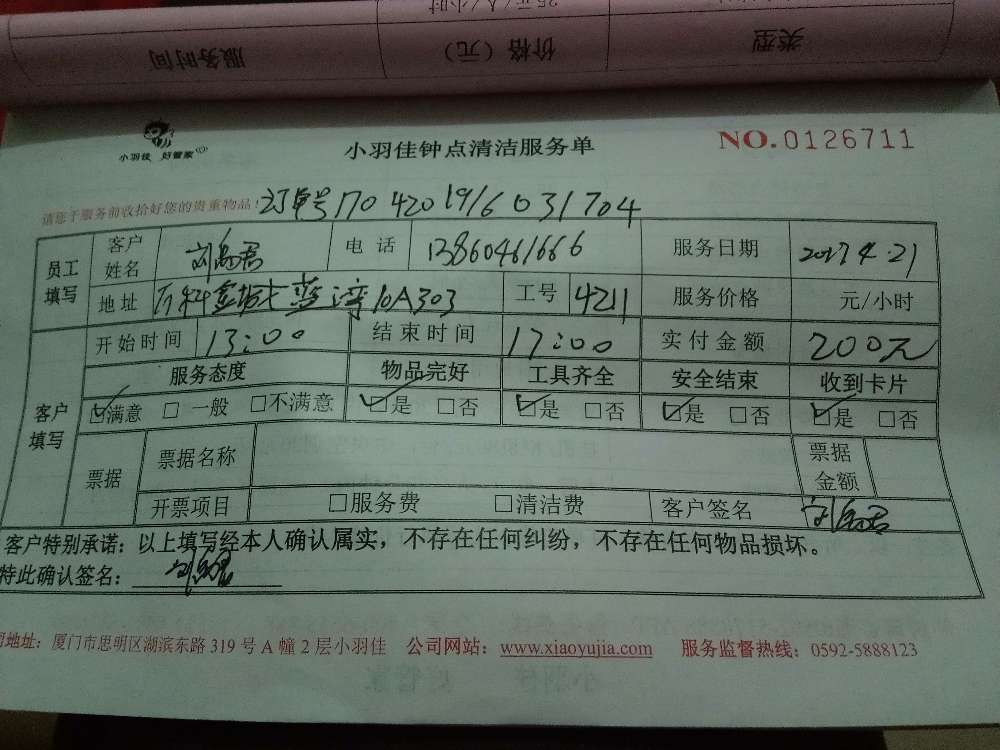 25元/人/小时
类型 价格（元） 服务时间
小羽佳 好管家
小羽佳钟点清洁服务单
NO.0126711
请您于服务前收拾好您的贵重物品！
订单号1704201916031704
员工填写 客户姓名 刘 君 电话 13860461666 服务日期 2017.4.21
地址 万科金域蓝湾10A303 工号 4211 服务价格 元/小时
客户填写 开始时间 13:00 结束时间 17:00 实付金额 200元
服务态度 物品完好 工具齐全 安全结束 收到卡片
☑满意 □一般 □不满意 ☑是 □否 ☑是 □否 ☑是 □否 ☑是 □否
票据 票据名称 票据金额
开票项目 □服务费 □清洁费 客户签名
客户特别承诺：以上填写经本人确认属实，不存在任何纠纷，不存在任何物品损坏。
特此确认签名：
司地址：厦门市思明区湖滨东路319号A幢2层小羽佳 公司网站：www.xiaoyujia.com 服务监督热线：0592-5888123